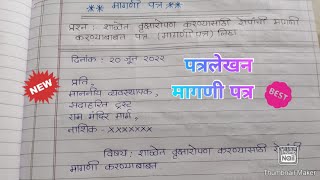 ** मागणी पत्र **
प्रश्न : शाळेत वृक्षारोपण करण्यासाठी रोपांची मागणी
करण्याबाबत पत्र (मागणी पत्र) लिहा
दिनांक : २० जून २०२२
प्रति,
माननीय व्यवस्थापक,
सदाहरित ट्रस्ट
राम मंदिर मार्ग,
नाशिक - xxxxxxx
विषय : शाळेत वृक्षारोपण करण्यासाठी
मागणी करण्याबाबत
पत्रलेखन
मागणी पत्र
NEW
BEST
Thumbnail Maker